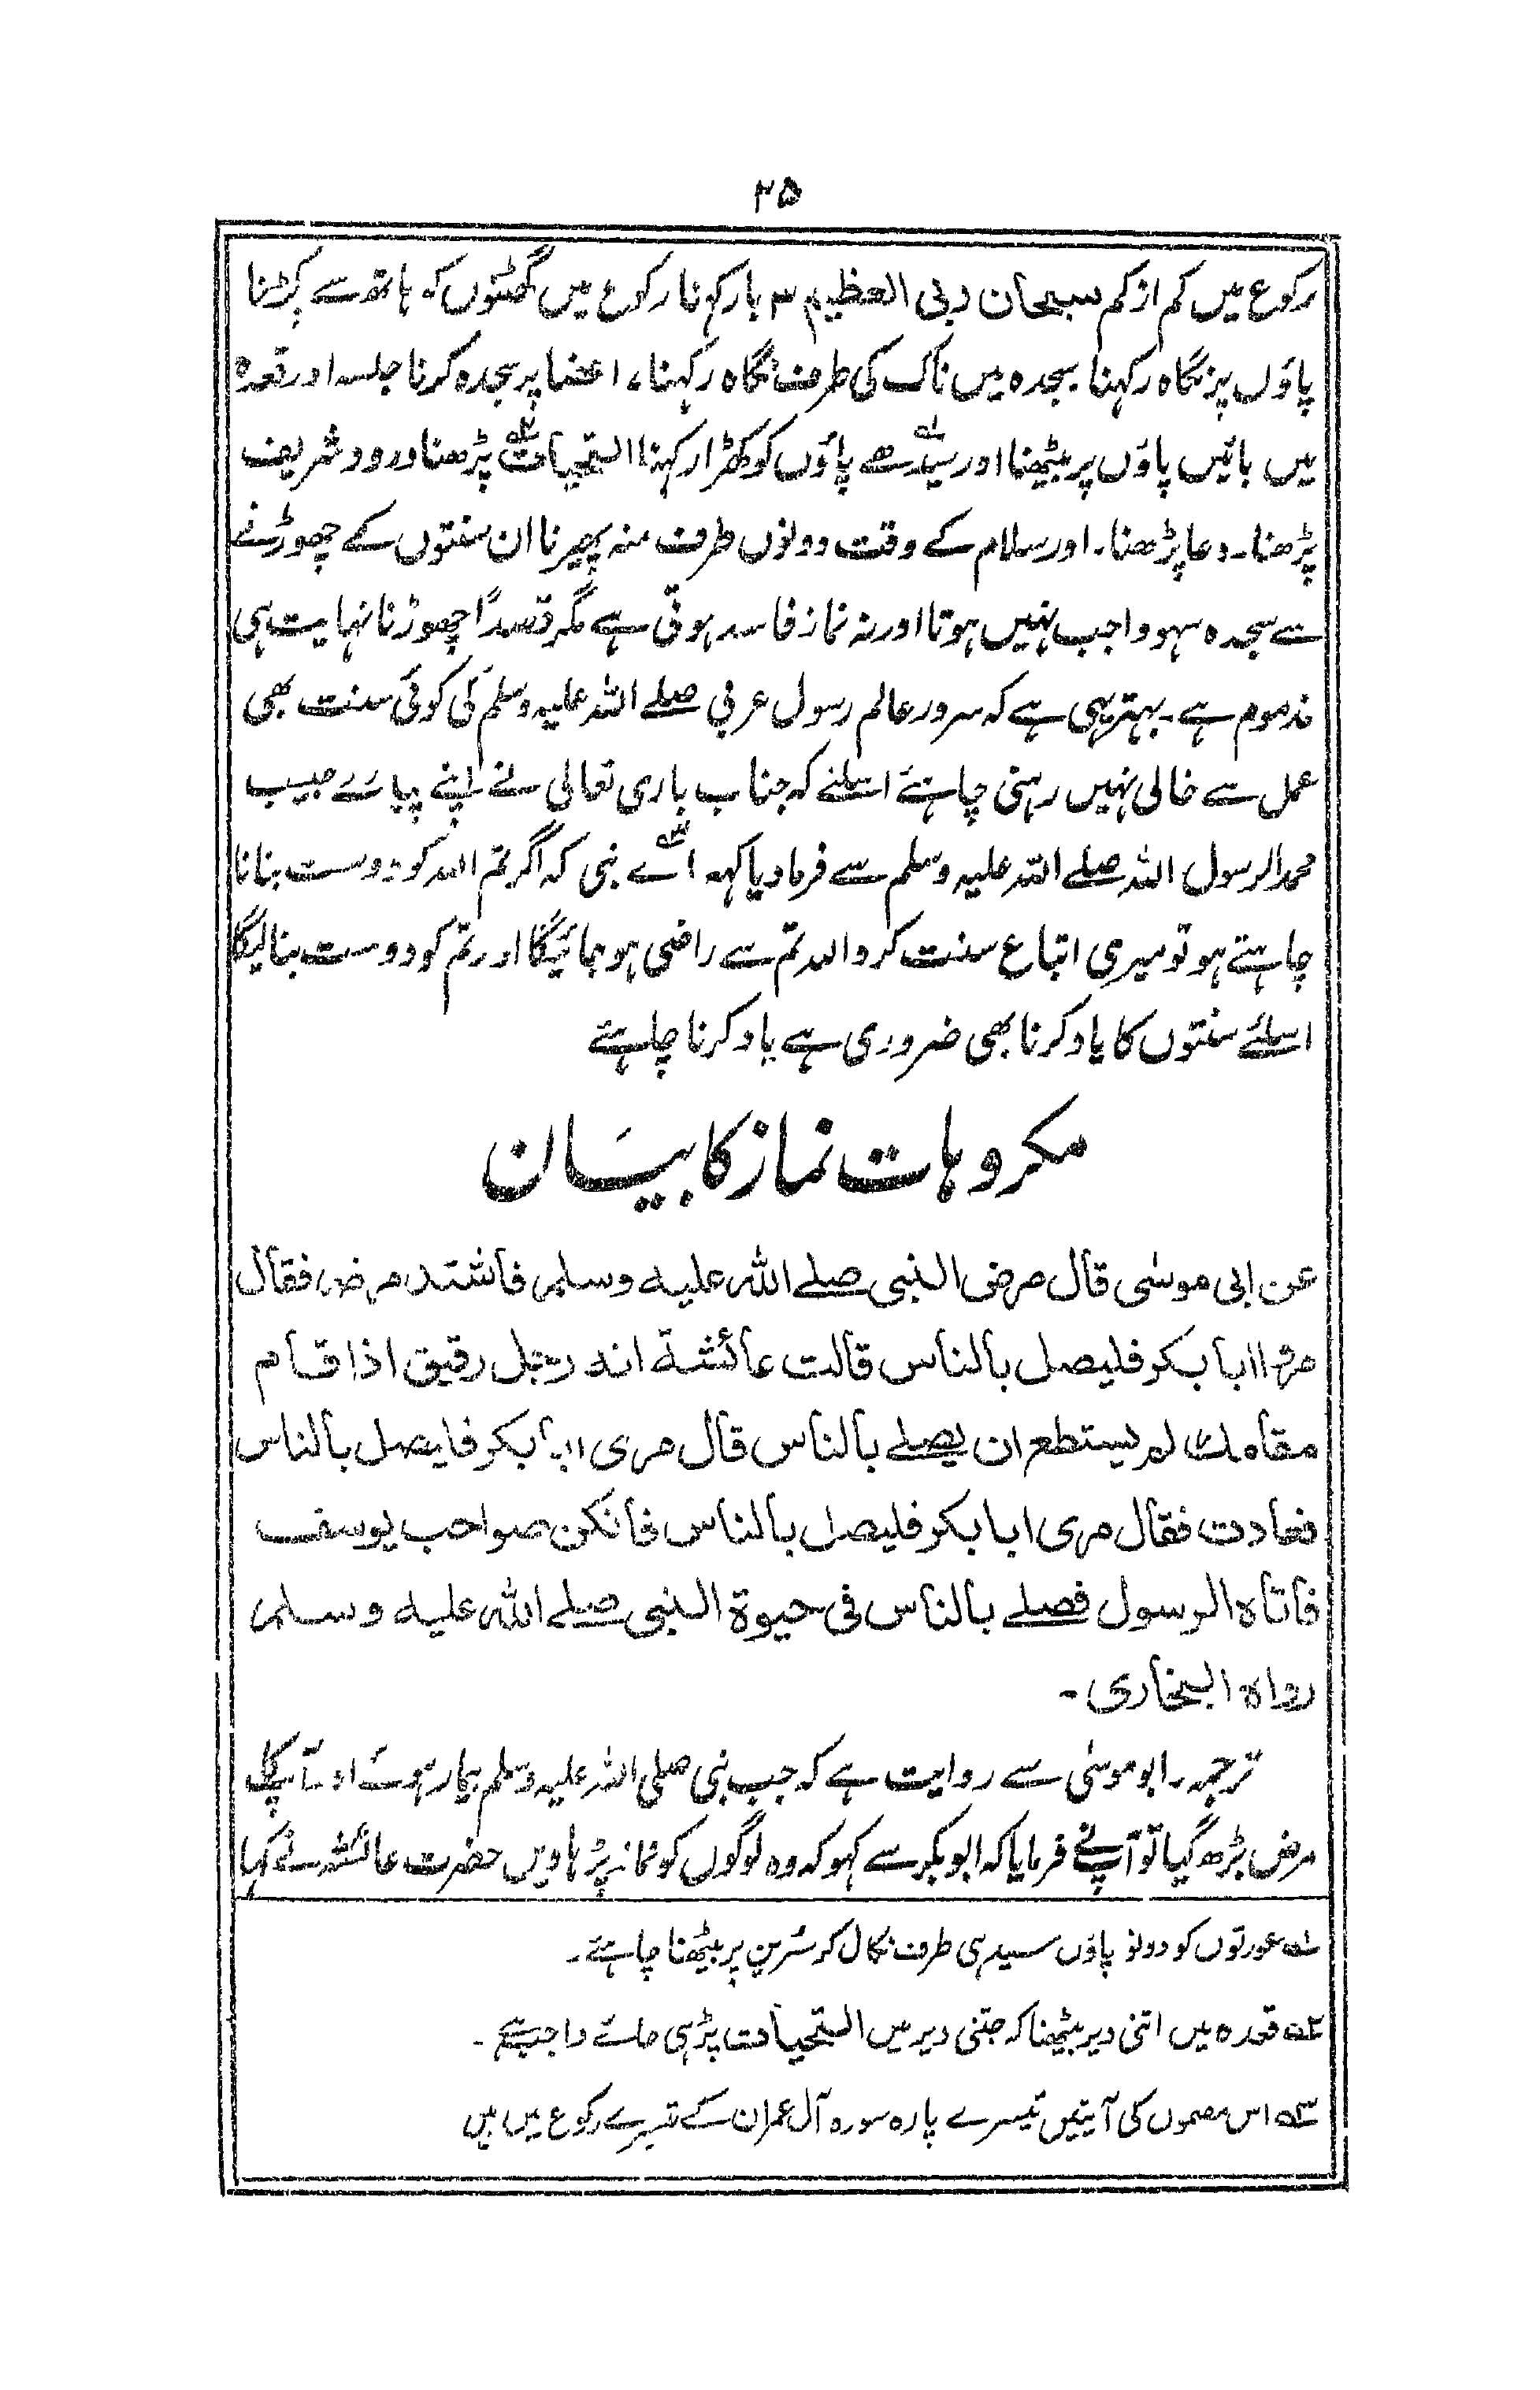 ۲۵
رکوع میں کم از کم سبحان ربی العظیم ۳ بار کہنا رکوع میں گھٹنوں کو ہاتھ سے پکڑنا
پاؤں پر نگاہ رکہنا سجدہ میں ناک کی طرف نگاہ رکہنا، اعضا پر سجدہ کرنا جلسہ اور قعدہ
میں بائیں پاؤں پر بیٹھنا اور سیدھے۱؎ پاؤں کو کھڑا رکہنا التحیات۲؎ پڑھنا درود شریف
پڑھنا۔ دعا پڑھنا۔ اور سلام کے وقت دونوں طرف منہ پھیرنا ان سنتوں کے چھوڑنے
سے سجدہ سہو واجب نہیں ہوتا اور نہ نماز فاسد ہوتی ہے مگر قصداً چھوڑنا نہایت ہی
مذموم ہے۔ بہتر یہی ہے کہ سرور عالم رسول عربی صلے اللہ علیہ وسلم کی کوئی سنت بھی
عمل سے خالی نہیں رہنی چاہئے اسلئے کہ جناب باری تعالی نے اپنے پیارے حبیب
محمد الرسول اللہ صلے اللہ علیہ وسلم سے فرما دیا کہہ اے۳؎ نبی کہ اگر تم اللہ کو دوست بنانا
چاہتے ہو تو میری اتباع سنت کرو اللہ تم سے راضی ہو جائیگا اور تم کو دوست بنالیگا
اسلئے سنتوں کا یاد کرنا بھی ضروری ہے یاد کرنا چاہئے
مکروہات نماز کا بیان
عن ابی موسٰی قال مرض النبی صلے اللہ علیہ وسلم فاشتد مرضہ فقال
مروا ابا بکر فلیصل بالناس قالت عائشة انہ رجل رقیق اذا قام
مقامک لم یستطع ان یصلے بالناس قال مری ابا بکر فلیصل بالناس
فعادت فقال مری ابا بکر فلیصل بالناس فانکن صواحب یوسف
فاتاہ الرسول فصلے بالناس فی حیوۃ النبی صلے اللہ علیہ وسلم
رواہ البخاری۔
ترجمہ۔ ابو موسٰی سے روایت ہے کہ جب نبی صلی اللہ علیہ وسلم بیمار ہوئے اور آپکا
مرض بڑھ گیا تو آپنے فرمایا کہ ابو بکر سے کہو کہ وہ لوگوں کو نماز پڑہاویں حضرت عائشہ نے کہا
۱؎ عورتوں کو دونو پاؤں سیدہی طرف نکال کر سُرین پر بیٹھنا چاہئے۔
۲؎ قعدہ میں اتنی دیر بیٹھنا کہ جتنی دیر میں التحیات پڑہی جائے واجب ہے۔
۳؎ اس مضمون کی آیتیں تیسرے پارہ سورہ آل عمران کے تیسرے رکوع میں ہیں